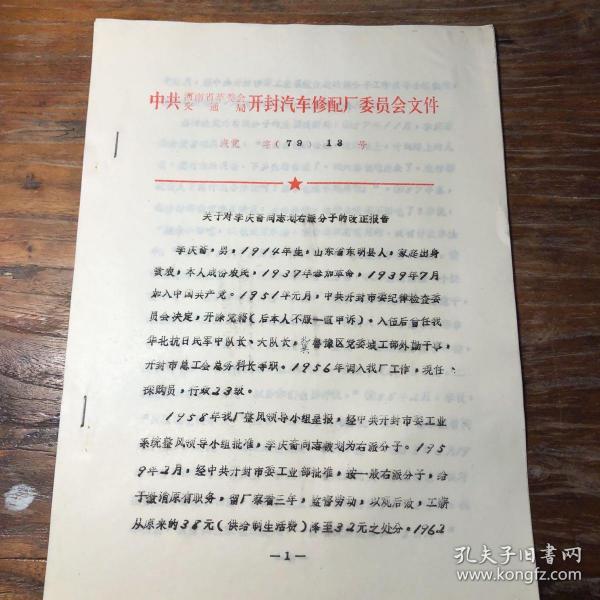 中共河南省革委会交通局开封汽车修配厂委员会文件
字(79)18号
关于对李庆番同志划右派分子的改正报告
李庆番,男,1914年生,山东省东明县人,家庭出身
贫农,本人成份农民,1937年参加革命,1939年7月
加入中国共产党。1951年元月,中共开封市委纪律检查委
员会决定,开除党籍(后本人不服一直申诉)。入伍后曾任我
华北抗日民军中队长、大队长,冀鲁豫区党委城工部外勤干事,
开封市总工会总务科长等职。1956年调入我厂工作,现任
採购员,行政23级。
1958年我厂整风领导小组呈报,经中共开封市委工业
系统整风领导小组批准,李庆番同志被划为右派分子。195
9年2月,经中共开封市委工业部批准,按一般右派分子,给
于撤消原有职务,留厂察看三年,监督劳动,以观后效,工薪
从原来的38元(供给制生活费)降至32元之处分。1962
—1—
孔夫子旧书网
www.kongfz.com